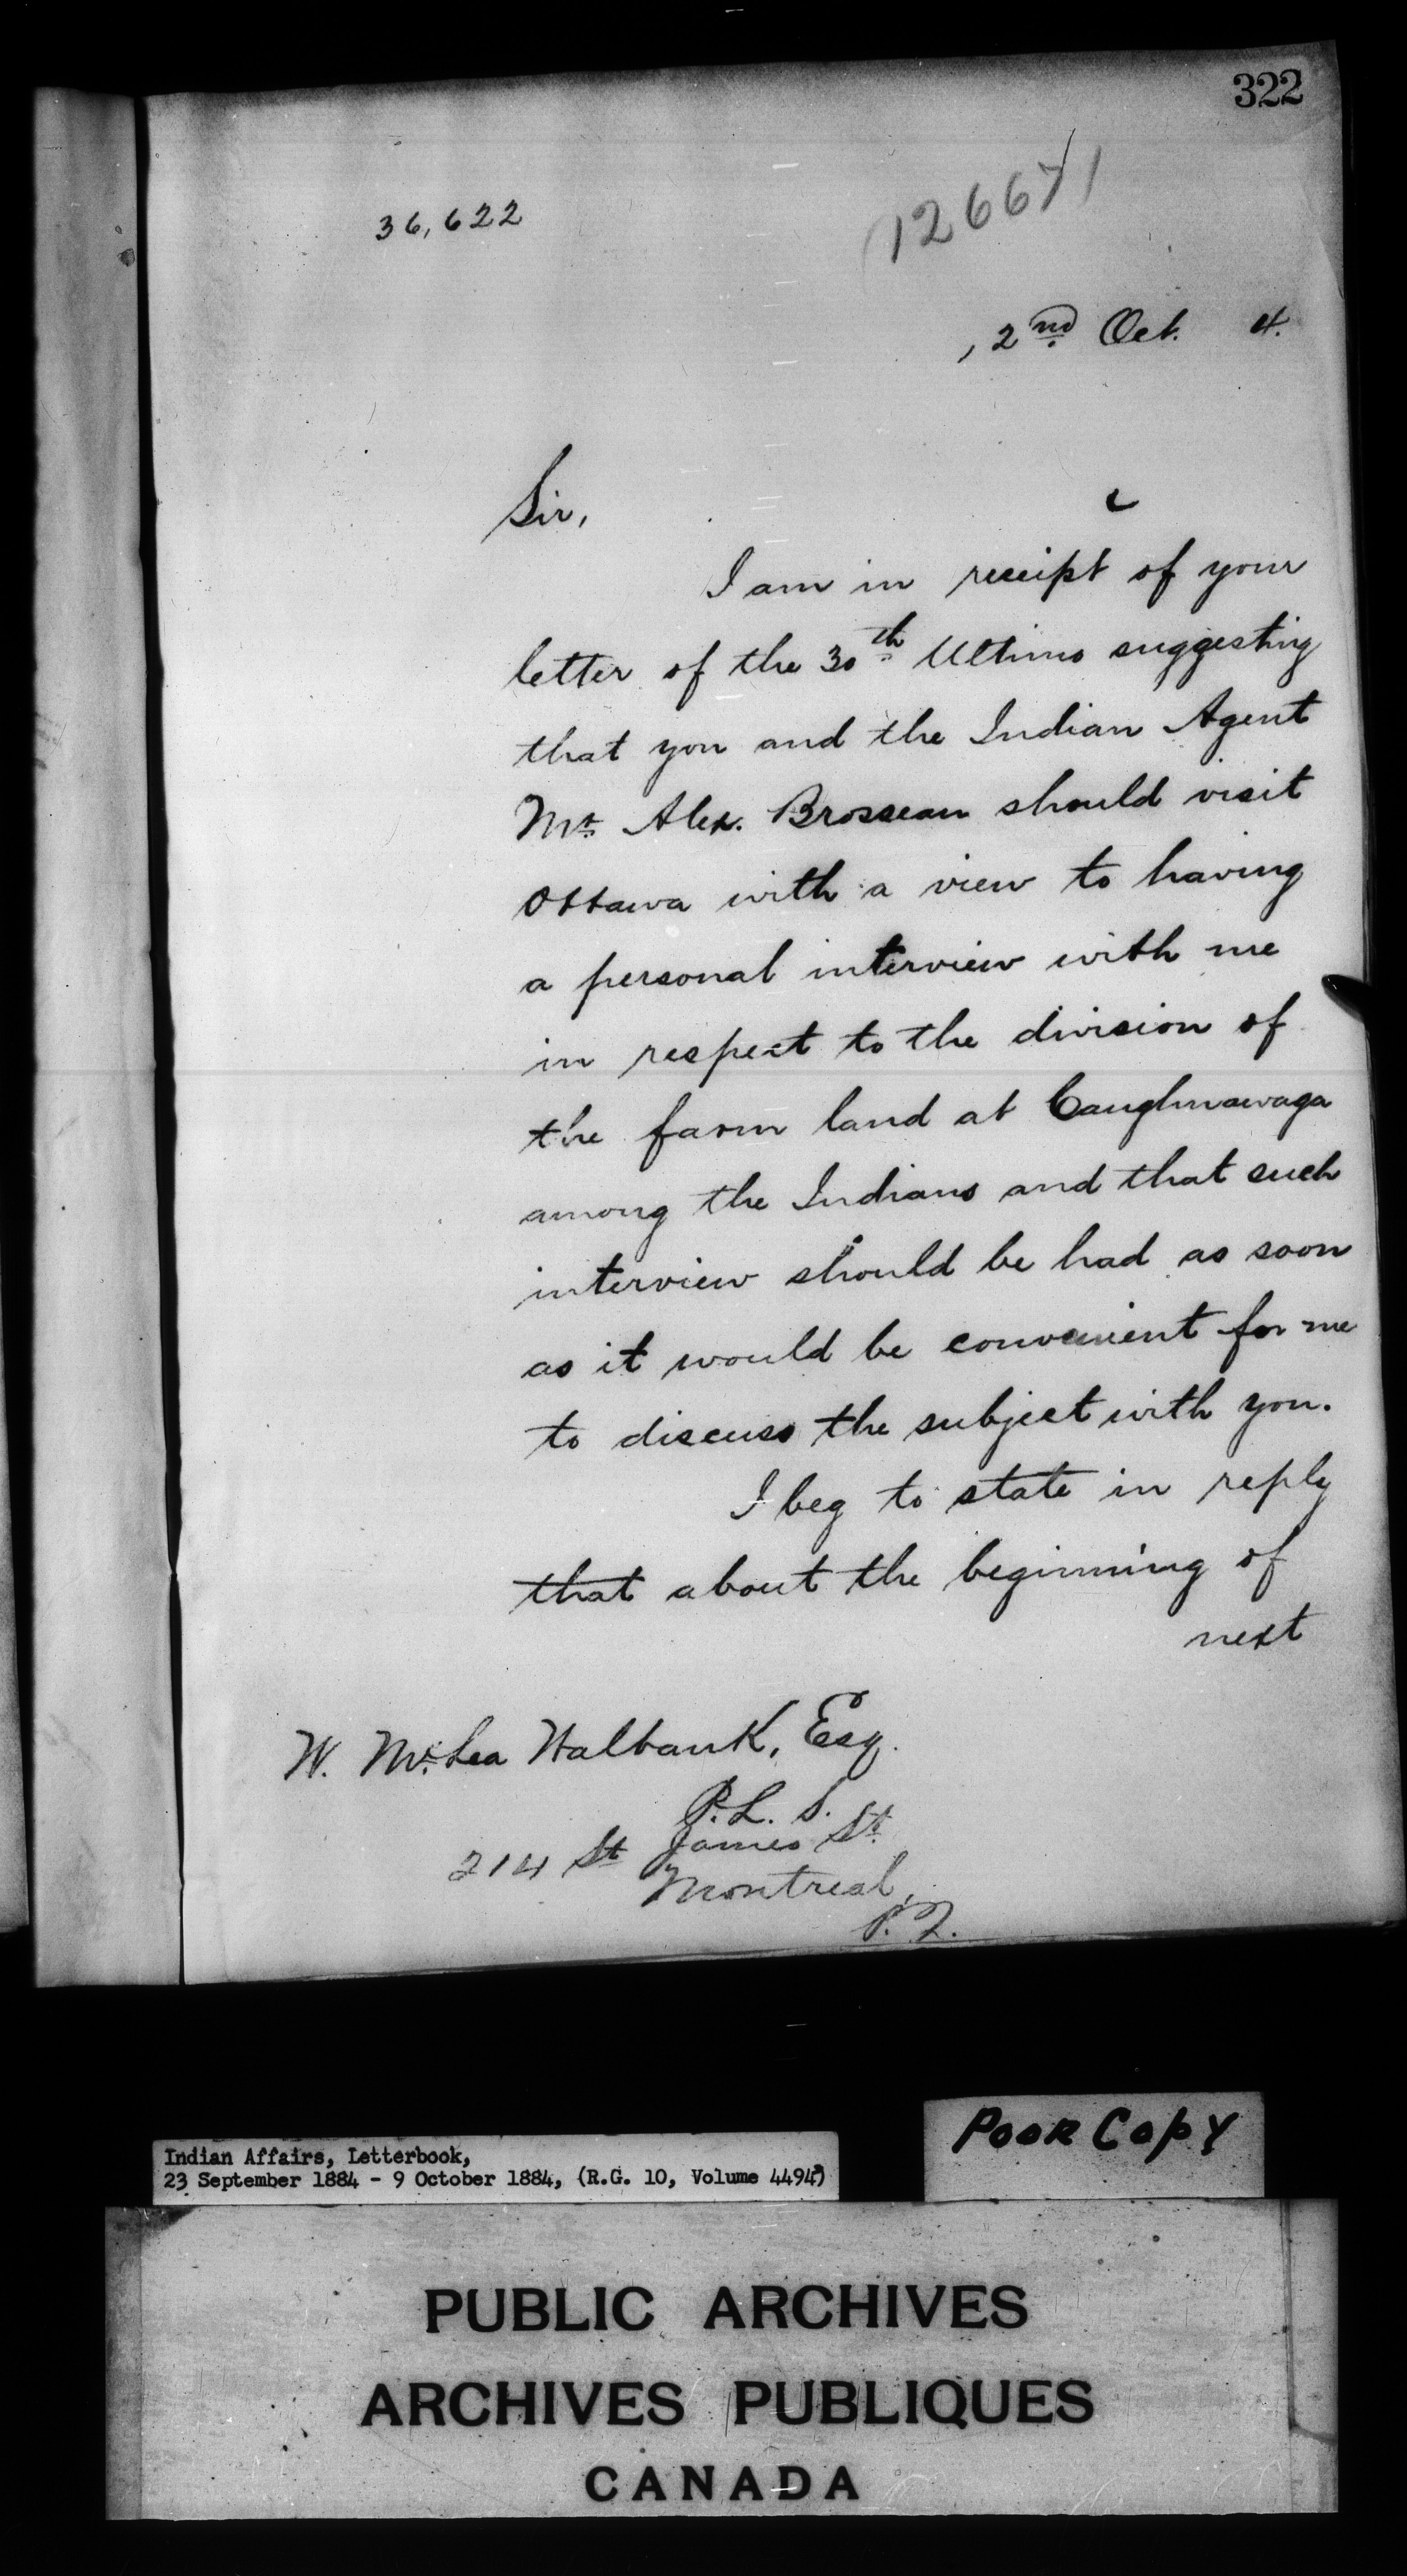 322
36,622
, 2nd Oct. 4.
Sir,
I am in receipt of your
letter of the 30th Ultimo suggesting
that you and the Indian Agent
Mr. Alex. Brosseau should visit
Ottawa with a view to having
a personal interview with me
in respect to the division of
the farm land at Caughnawaga
among the Indians and that such
interview should be had as soon
as it would be convenient for me
to discuss the subject with you.
I beg to state in reply
that about the beginning of
next
W. McLea Walbank, Esq.
P.L.S.
214 St James St.
Montreal,
P.Q.
Poor Copy
Indian Affairs, Letterbook,
23 September 1884 - 9 October 1884, (R.G. 10, Volume 4494)
PUBLIC ARCHIVES
ARCHIVES PUBLIQUES
CANADA